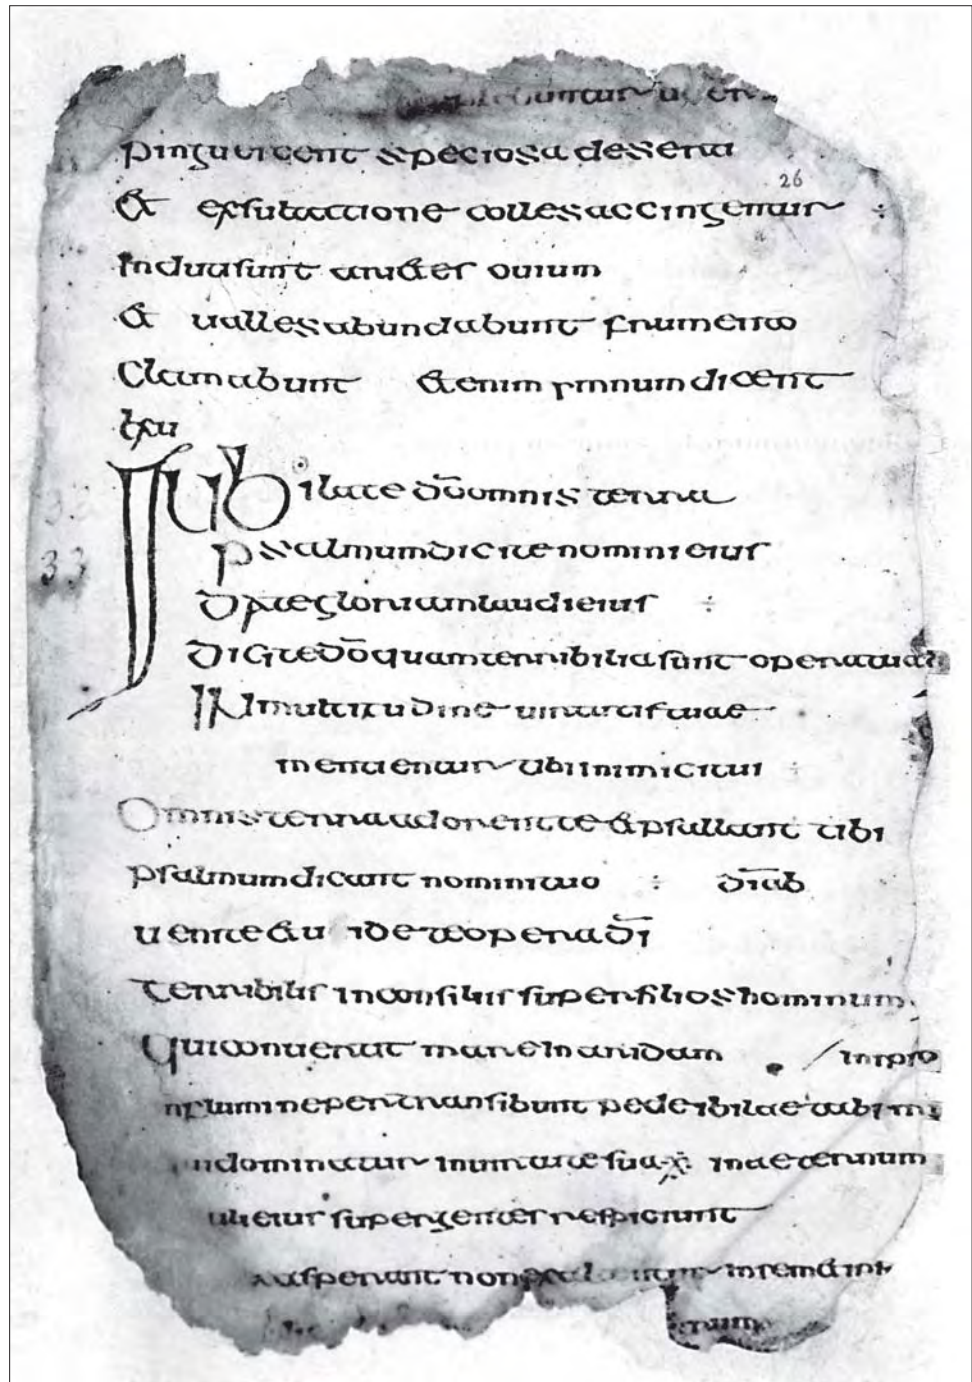 pinguescent speciosa deserti
26
& exsultatione colles accingentur ÷
Induti sunt ari&es ouium
& ualles abundabunt frumento
Clamabunt &enim ymnum dicent
Iubilate dō omnis terra
psalmum dicite nomini eius
33
date gloriam laudi eius ÷
dicite dō quam terribilia sunt opera tua
IN multitudine uirtutis tuae
mentientur tibi inimici tui ÷
Omnis terra adoret te & psallant tibi
psalmum dicant nomini tuo ÷
uenite & uidete opera dī
terribilis in consiliis super filios hominum
Qui conuertit mare in aridam / in ipso
in flumine pertransibunt pede ibi laetabimur
dominatur in uirtute sua in aeternum
eius super gentes respiciunt
asperant non